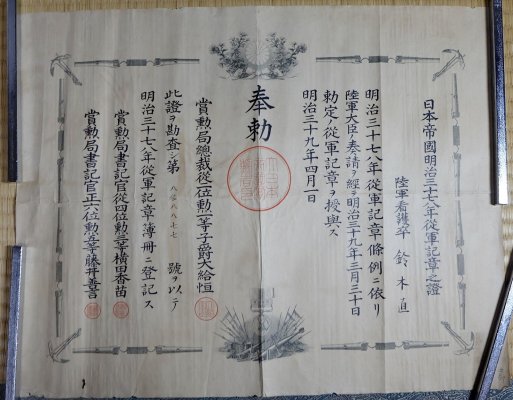 日本帝國明治三十七八年從軍記章之證
陸軍看護卒 鈴木直
明治三十七八年從軍記章條例ニ依リ
陸軍大臣ノ奏請ヲ經テ明治三十九年三月三十日
勅定ノ從軍記章ヲ授與ス
明治三十九年四月一日
奉勅
賞勲局總裁從二位勲一等子爵大給恒
此證ヲ勘査シ第 號ヲ以テ
明治三十七八年從軍記章簿冊ニ登記ス
賞勲局書記官從四位勲三等横田香苗
賞勲局書記官正六位勲五等藤井善言